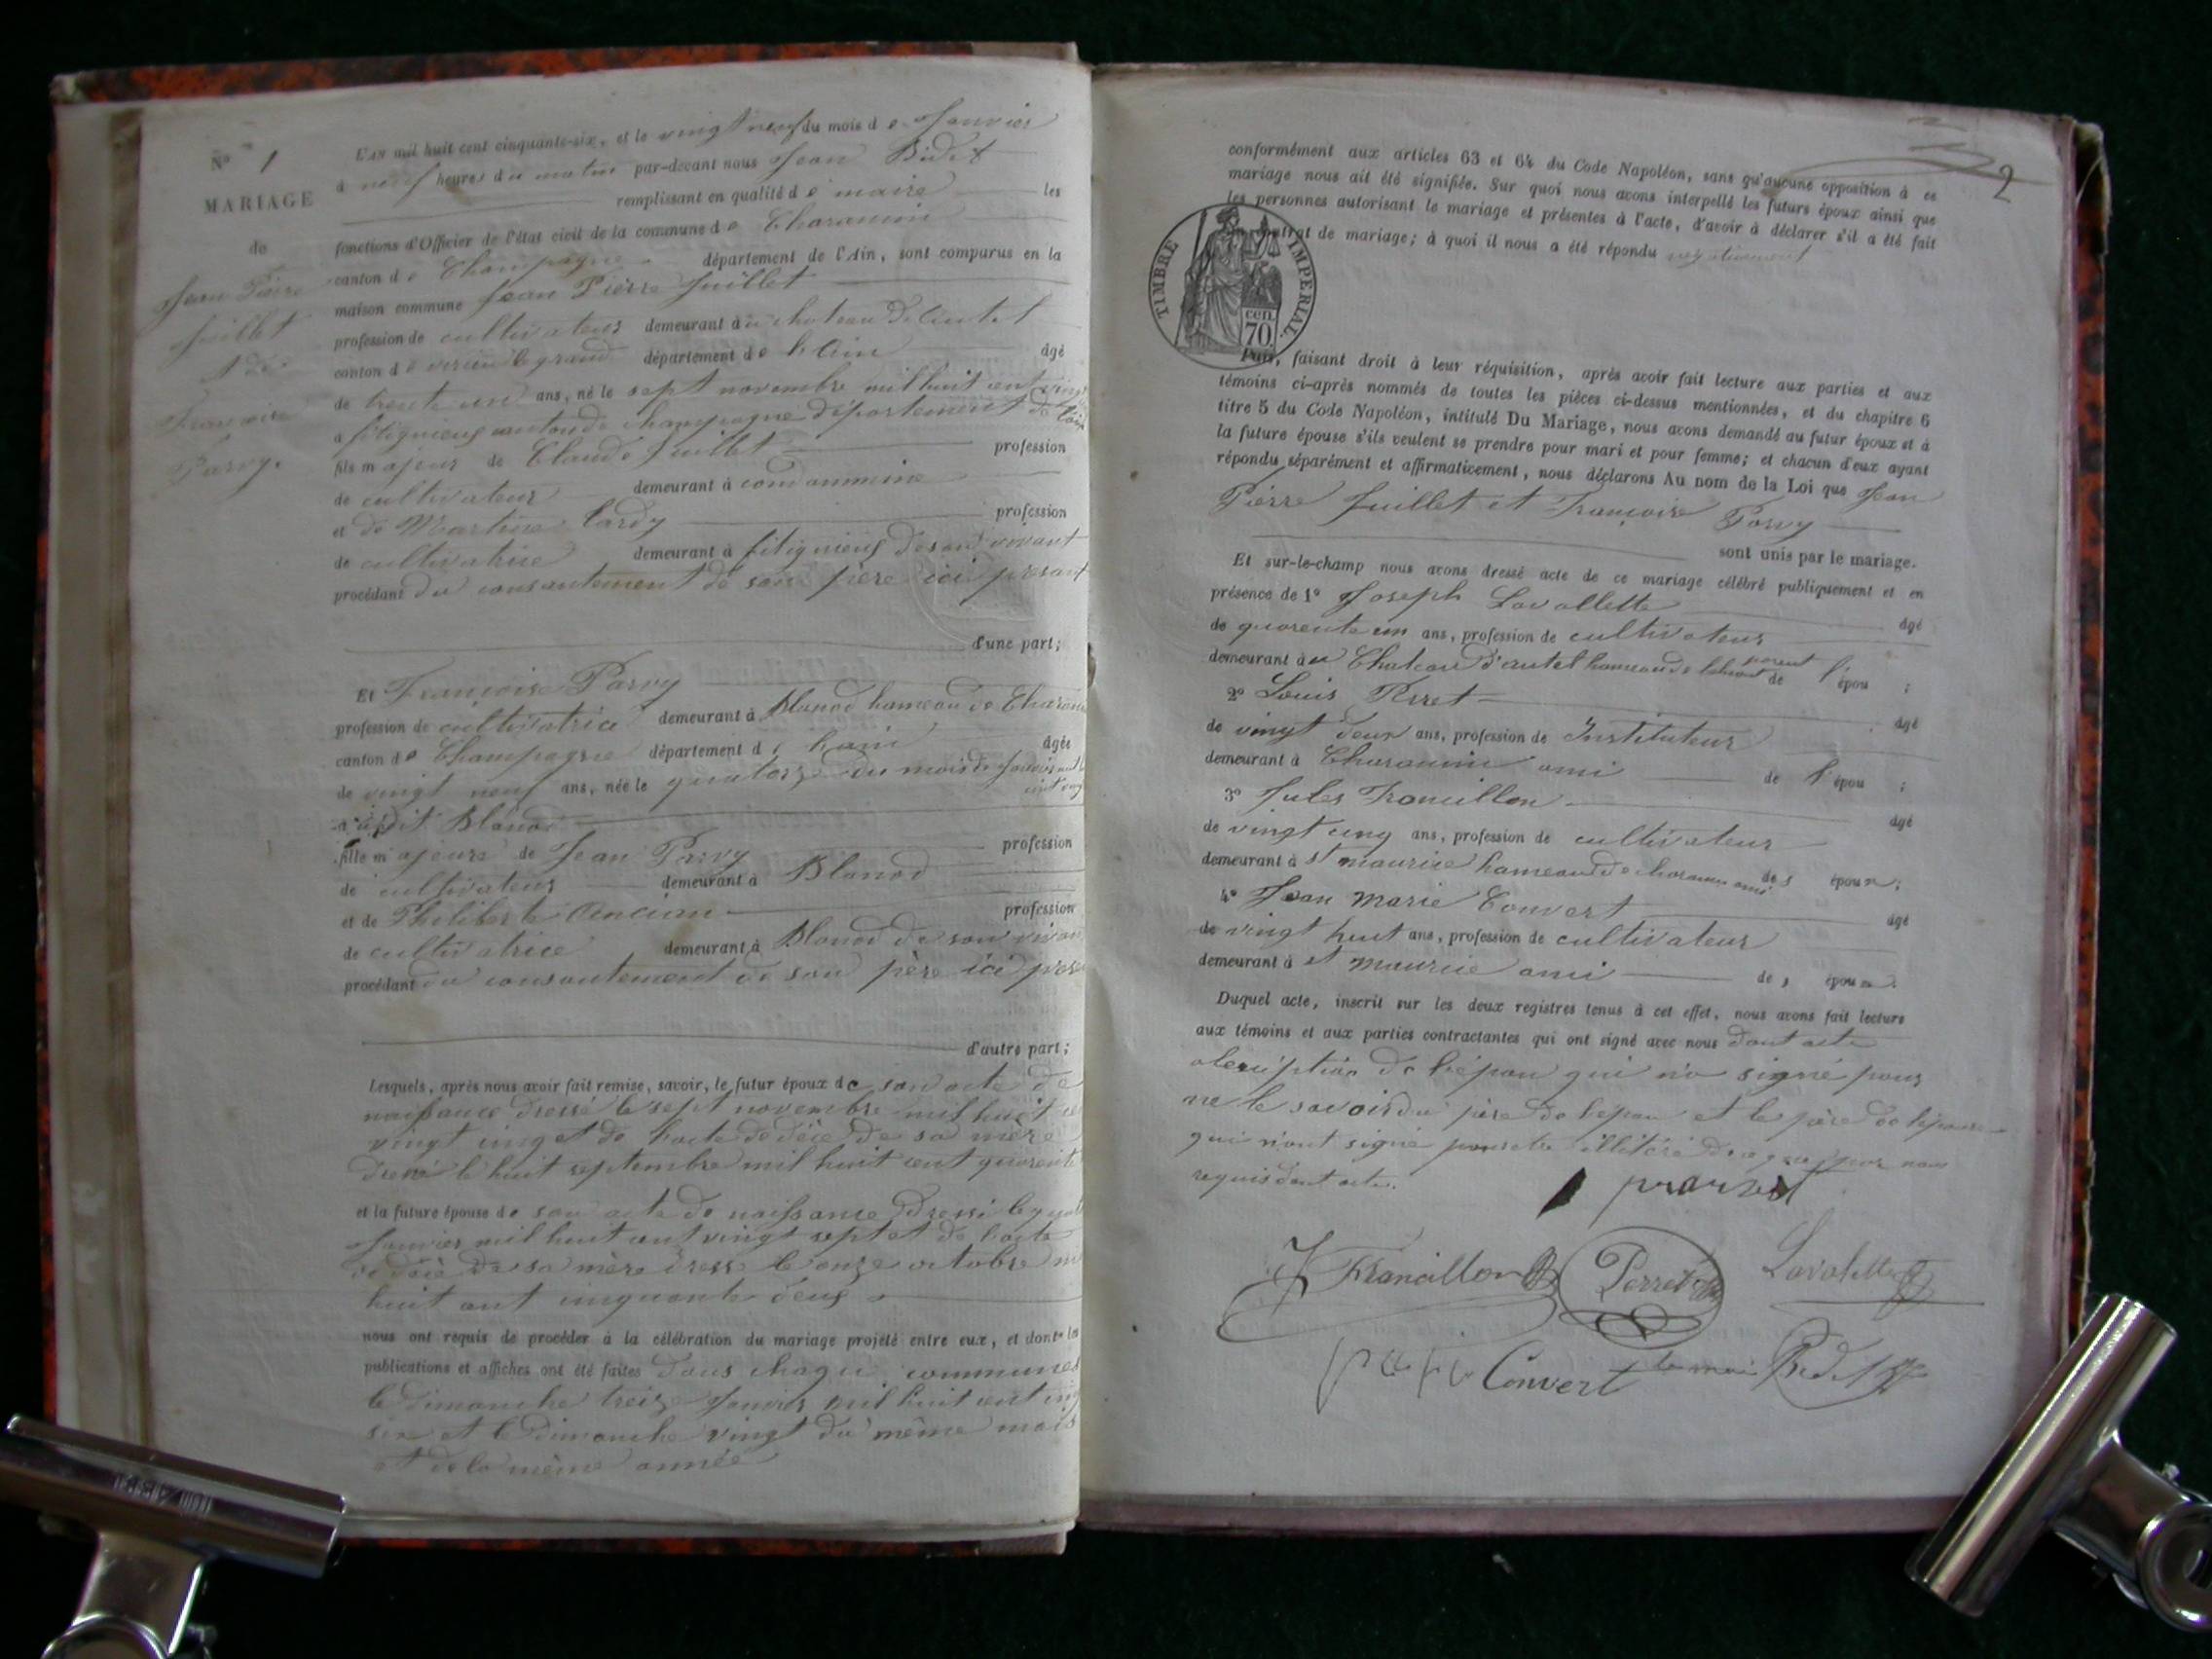 N° 1
MARIAGE
de
Jean Pierre
Juillet
et de
Françoise
Parvy.
L'AN mil huit cent cinquante-six, et le vingt neuf du mois de Janvier
à neuf heures du matin par-devant nous Jean Bidet
remplissant en qualité de maire les
fonctions d'Officier de l'état civil de la commune de Charancin
canton de Champagne département de l'Ain, sont comparus en la
maison commune Jean Pierre Juillet
profession de cultivateur demeurant à
canton de virieu le grand département de l'Ain âgé
de trente un ans, né le sept novembre mil huit cent
a fitignieu canton de champagne département de l'ain
fils majeur de Claude Juillet profession
de cultivateur demeurant à condammine
et de Martine profession
de cultivatrice demeurant à fitignieu de son vivant
procédant du consantement de son père ici présant
d'une part;
Et Françoise Parvy
profession de cultivatrice demeurant à Blanod hameau de
canton de Champagne département de âgée
de vingt neuf ans, née le du mois de
Blanod
fille majeure de Jean Parvy profession
de cultivateur demeurant à Blanod
et de Philiberte Ancian profession
de cultivatrice demeurant à Blanod de son
procédant du consantement de son père ici
d'autre part;
Lesquels, après nous avoir fait remise, savoir, le futur époux de son acte de
naissance dressé le sept novembre mil huit
vingt cinq et de l'acte de décè de sa mère
dressé le huit septembre mil huit cent quarente
et la future épouse de son acte de naissance dressé le
Janvier mil huit cent vingt sept et de l'acte
de décè de sa mère dressé le onze octobre
huit cent cinquante deux
nous ont requis de procéder à la célébration du mariage projeté entre eux, et dont les
publications et affiches ont été faites dans chaque communes
le Dimanche treize Janvier mil huit cent
six et le Dimanche vingt du même mois
et de la même année
2
conformément aux articles 63 et 64 du Code Napoléon, sans qu'aucune opposition à ce
mariage nous ait été signifiée. Sur quoi nous avons interpellé les futurs époux ainsi que
les personnes autorisant le mariage et présentes à l'acte, d'avoir à déclarer s'il a été fait
contrat de mariage; à quoi il nous a été répondu négativement
TIMBRE IMPERIAL.
cen.
70.
Puis, faisant droit à leur réquisition, après avoir fait lecture aux parties et aux
témoins ci-après nommés de toutes les pièces ci-dessus mentionnées, et du chapitre 6
titre 5 du Code Napoléon, intitulé Du Mariage, nous avons demandé au futur époux et à
la future épouse s'ils veulent se prendre pour mari et pour femme; et chacun d'eux ayant
répondu séparément et affirmativement, nous déclarons Au nom de la Loi que Jean
Pierre Juillet et Françoise Parvy
sont unis par le mariage.
Et sur-le-champ nous avons dressé acte de ce mariage célébré publiquement et en
présence de 1° Joseph Lavallette âgé
de quarente un ans, profession de cultivateur
demeurant à parent de l'épou ;
2° Louis Perret âgé
de vingt deux ans, profession de Instituteur
demeurant à Charancin ami de l'épou ;
3° Jules Francillon âgé
de vingt cinq ans, profession de cultivateur
demeurant à St maurice hameau de ami des époux;
4° Jean Marie Convert âgé
de vingt huit ans, profession de cultivateur
demeurant à St maurice ami des époux.
Duquel acte, inscrit sur les deux registres tenus à cet effet, nous avons fait lecture
aux témoins et aux parties contractantes qui ont signé avec nous dont acte
de l'épou qui n'a signé pour
ne le savoir du père de l'épou et le père de l'épouse
qui n'ont signé pour être illitéré de ce par nous
requis dont acte.
J Francillon
Perret
Lavalette
Convert
le maire Bidet